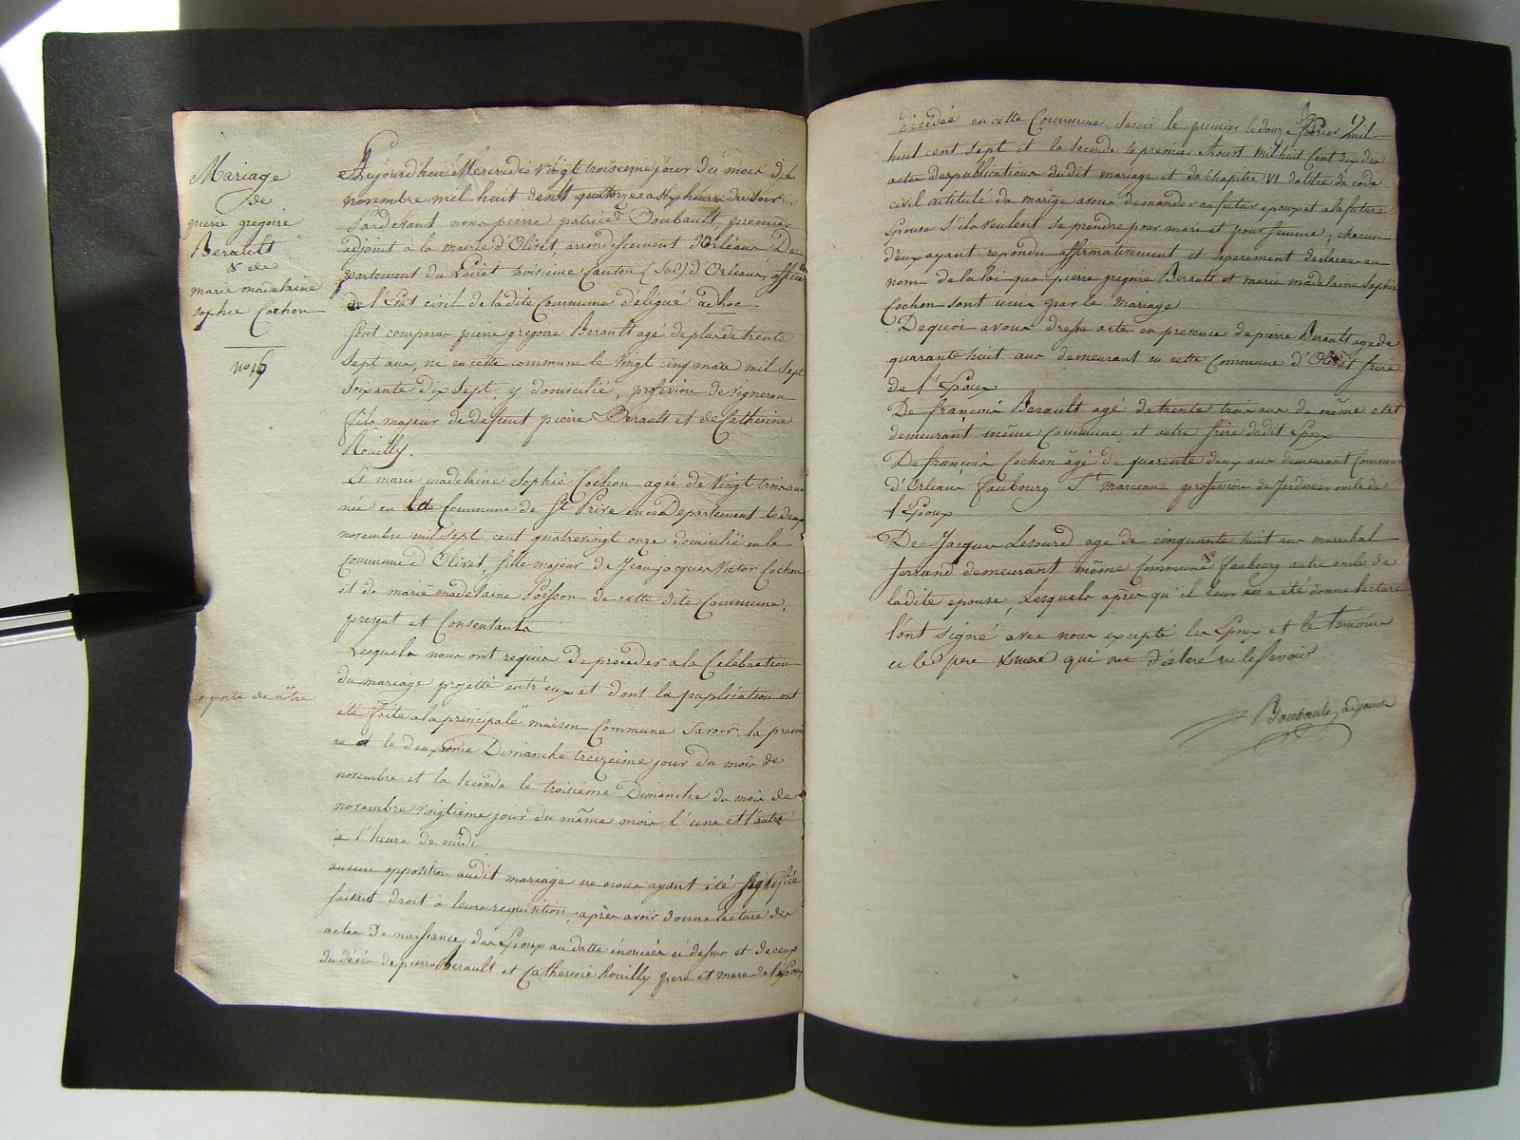 Mariage
de
pierre gregoire
Berault
& de
marie madelaine
sophie Cochon
no 19
Aujourd'hui Mercredi Vingt troisieme jour du mois de
novembre mil huit cent quatorze a six heures du soir
Pardevant nous pierre patrice Boubault premier
adjoint a la mairie d'Olivet, arrondissement d'Orleans De
partement du Loiret troisieme Canton (Sud) d'Orleans officier
de l'Etat civil de la dite Commune deligué ad hoc
Sont comparus pierre gregoire Berault agé de plus de trente
sept ans, né en cette commune le vingt cinq mars mil sept
soixante dix sept, y domicilié, profession de vigneron
fils majeur de defunt pierre Berault et de Catherine
Rouilly.
Et marie madelaine Sophie Cochon agée de vingt trois ans
née en la Commune de St Privé en ce Departement le deux
novembre mil sept cent quatrevingt onze domicilié en la
commune d'Olivet, fille majeur de Jean jacques Victor Cochon
et de marie madelaine Poisson de cette dite Commune,
presents et Consentants
Lesquels nous ont requis de proceder a la Celebration
du mariage projetté entr'eux et dont la publication ont
eté faite a la principale maison Commune Savoir la premie
re le deuxieme Dimanche treizieme jour du mois de
novembre et la seconde le troisieme Dimanche du mois de
novembre vingtieme jour du même mois l'une et l'autre
a l'heure de midi
aucune opposition audit mariage ne nous ayant été signifiée
faisant droit à leurs requisition, après avoir donné lecture des
actes De naissance des Epoux au datte énoncées ci dessus et de ceux
du décès de pierre Berault et Catherine Rouilly pere et mere de l'Epoux
porte de nôtre
2
décédés en cette Commune, Savoir le premier le douze fevrier mil
huit cent sept et la seconde le premier Aoust mil huit Cent dix des
actes de publication dudit mariage et du chapitre VI du titre du code
civil intitulé du mariage avons demandé au futur epoux et a la future
Epouse s'ils veulent se prendre pour mari et pour femme, chacun
d'eux ayant repondu affirmativement et separement declarons au
nom de la loi que pierre gregoire Berault et marie madelaine sophie
Cochon sont unis par le mariage
De quoi avons dressé acte en presence de pierre Berault agé de
quarante huit ans demeurant en cette Commune d'Olivet frere
de l'Epoux
De françois Berault agé de trente trois ans de même etat
demeurant même Commune et autre frere dudit Epoux
De françois Cochon âgé de quarante deux ans demeurant Commune
d'Orleans faubourg St marceau profession de Jardinier oncle de
l'Epoux
De Jacques Lesourd age de cinquante huit ans marechal
ferrand demeurant même Commune faubourg autre oncle de
ladite epouse, Lesquels après qu'il leur en a été donné lecture
l'ont signé avec nous excepté les Epoux et le temoin
et le pere qui ont déclaré ne le savoir
Boubault, adjoint